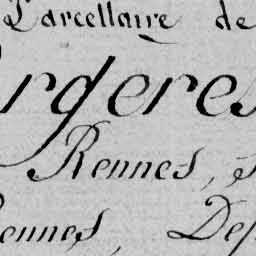 Parcellaire de
rgeres
Rennes, s
ennes, Dep